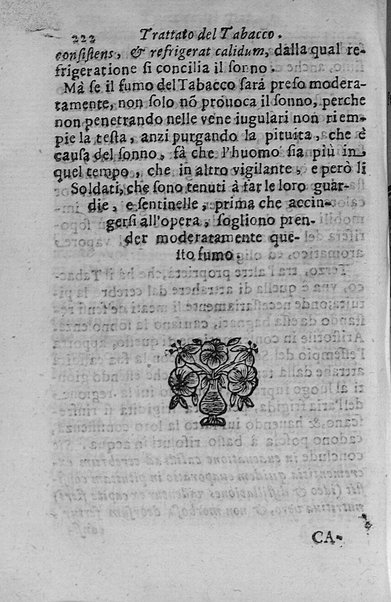 222 Trattato del Tabacco.
consistens, & refrigerat calidum, dalla qual re-
frigeratione si concilia il sonno.
Mà se il fumo del Tabacco sarà preso modera-
tamente, non solo nõ prouoca il sonno, perche
non penetrando nelle vene iugulari non riem-
pie la testa, anzi purgando la pituita, che è
causa del sonno, fà che l'huomo sia più in
quel tempo, che in altro vigilante, e però li
Soldati, che sono tenuti à far le loro guar-
die, e sentinelle, prima che accin-
gersi all'opera, sogliono pren-
der moderatamente que-
sto fumo.
CA-